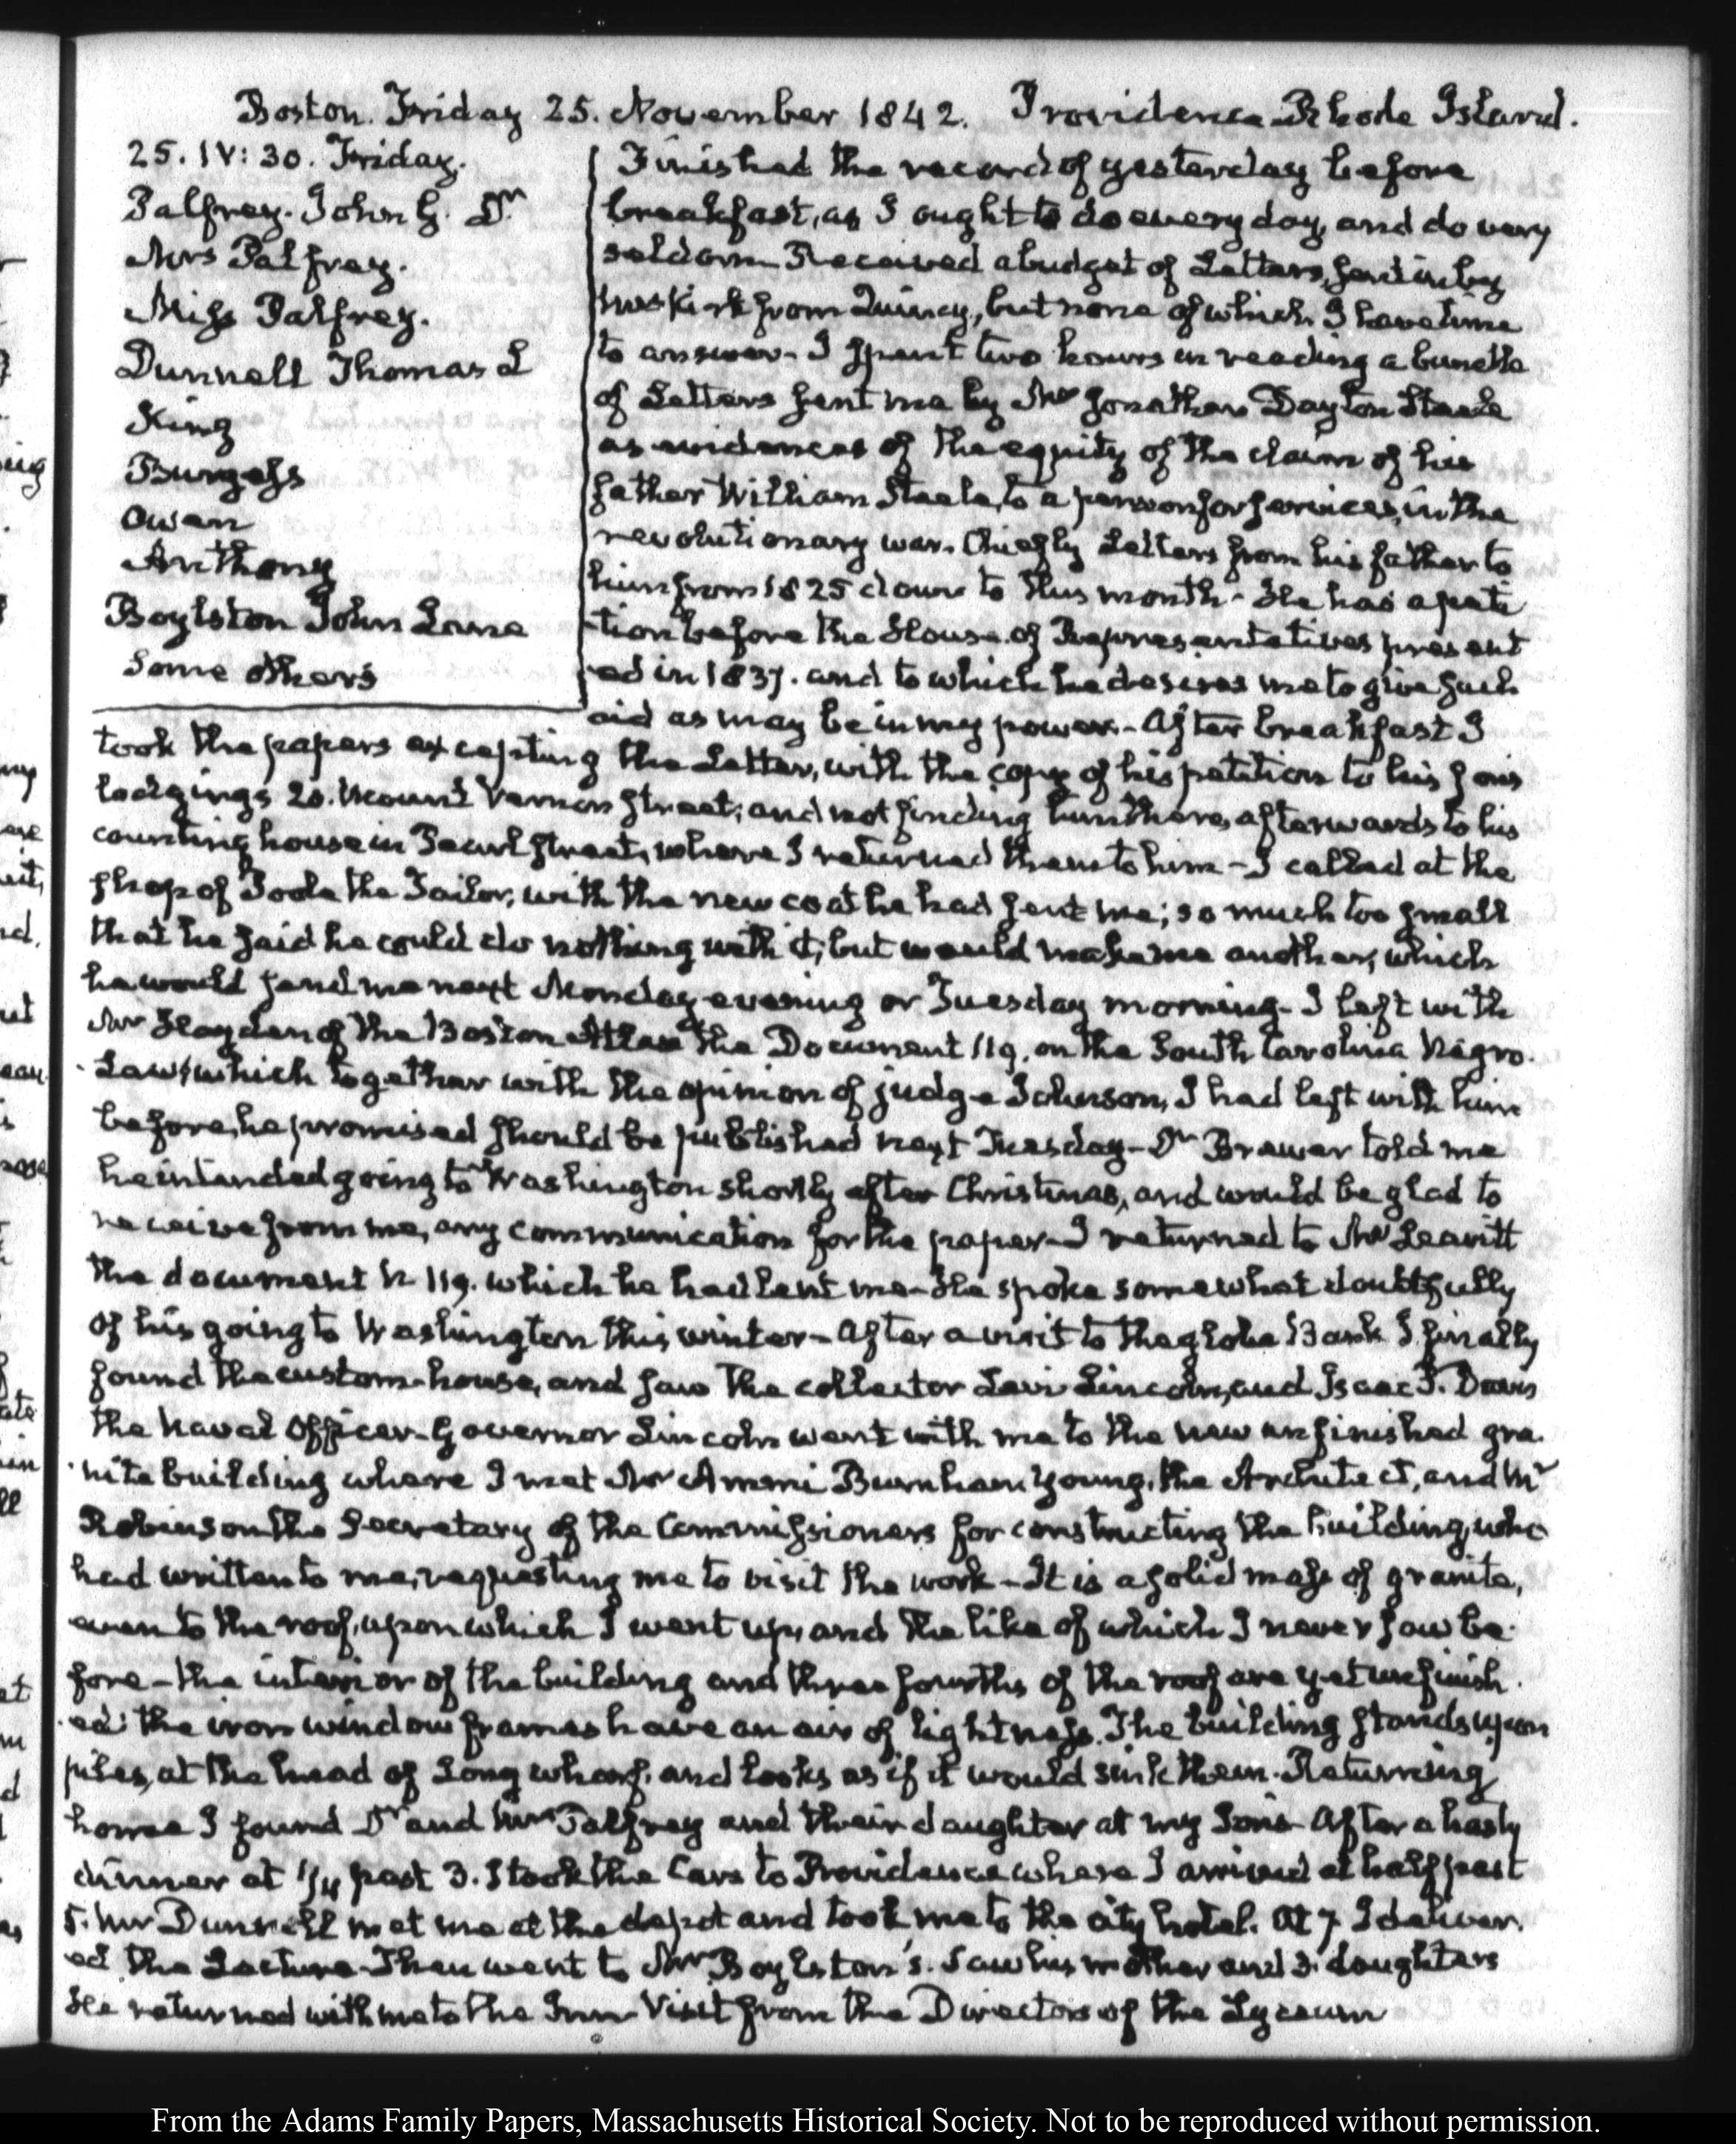 Boston. Friday 25. November 1842. Providence Rhode Island.
25. IV:30. Friday.
Palfrey. John G. Dr.
Mrs Palfrey.
Miss Palfrey.
Dunnell Thomas L
King
Burgess
Owen
Anthony
Boylston John Lane
Some others
Finished the record of yesterday before
breakfast, as I ought to do every day, and do very
seldom. Received a budget of Letters, sent in by
Mrs Kirk from Quincy, but none of which I have time
to answer. I spent two hours in reading a bundle
of Letters sent me by Mr Jonathan Dayton Steele
as evidences of the equity of the claim of his
father William Steele, to a pension for services, in the
revolutionary war. Chiefly Letters from his father to
him from 1825 down to this month. He has a peti
-tion before the House of Representatives present
ed in 1837. and to which he desires me to give such
aid as may be in my power. After breakfast I
took the papers excepting the Letter, with the copy of his petition to his son's
lodgings 20. Mount Vernon Street; and not finding him there, afterwards to his
counting house in Pearl Street, where I returned them to him - I called at the
shop of Poole the Tailor, with the new coat he had sent me; so much too small
that he said he could do nothing with it, but would make me another, which
he would send me next Monday evening or Tuesday morning. I left with
Mr Hayden of the Boston Atlas the Document 119. on the South Carolina Negro.
Law, which together with the opinion of judge Johnson, I had left with him
before, he promised should be published next Tuesday - Dr Brewer told me
he intended going to Washington shortly after Christmas, and would be glad to
receive from me, any communication for the paper - I returned to Mr Leavitt
the document N 119. which he had lent me - He spoke somewhat doubtfully
of his going to Washington this winter - After a visit to the Globe Bank I finally
found the custom-house, and saw the collector Levi Lincoln, and Isaac P. Davis
the Naval Officer - Governor Lincoln went with me to the new unfinished gra
-nite building where I met Mr Ammi Burnham Young, the Architect, and Mr
Robinson the Secretary of the Commissioners for constructing the building, who
had written to me, requesting me to visit the work - It is a solid mass of granite,
even to the roof, upon which I went up, and the like of which I never saw be-
fore - the interior of the building and three fourths of the roof are yet unfinish-
ed: the iron window frames have an air of lightness. The building stands upon
piles, at the head of Long wharf, and looks as if it would sink them. Returning
home I found Dr and Mrs Palfrey and their daughter at my Son's. After a hasty
dinner at 1/4 past 3. I took the Cars to Providence where I arrived at half past
5. Mr Dunnell met me at the depot and took me to the city hotel. At 7 I deliver.
ed the Lecture. Then went to Mr Boylston's. Saw his mother and 3 daughters
He returned with me to the Inn - Visit from the Directors of the Lyceum
From the Adams Family Papers, Massachusetts Historical Society. Not to be reproduced without permission.